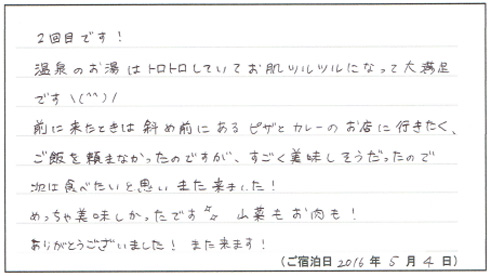 2回目です！
温泉のお湯はトロトロしていてお肌ツルツルになって大満足
です\(^^)/
前に来たときは斜め前にあるピザとカレーのお店に行きたく、
ご飯を頼まなかったのですが、すごく美味しそうだったので
次は食べたいと思いまた来ました！
めっちゃ美味しかったです 山菜もお肉も！
ありがとうございました！ また来ます！
(ご宿泊日 2016 年 5 月 4 日)